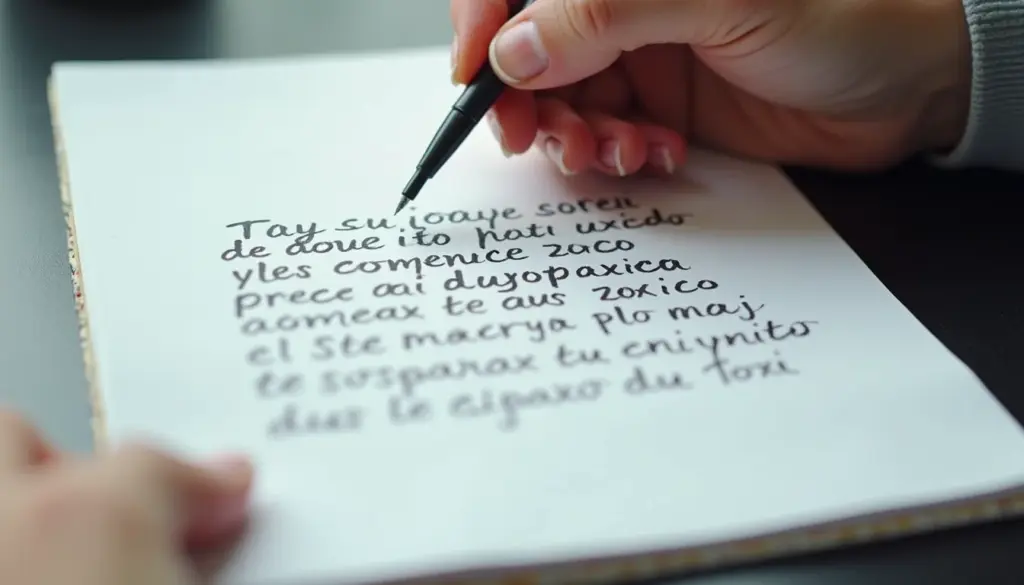 Tay su ioaye soreu
de aoue ito hati uxicdo
yles comenice zaco
prece aai duyopaxica
aomeax te aus zoxico
el Ste macrya plo maj
te sosparax tu eniynito
dus le eigaxo du foxi